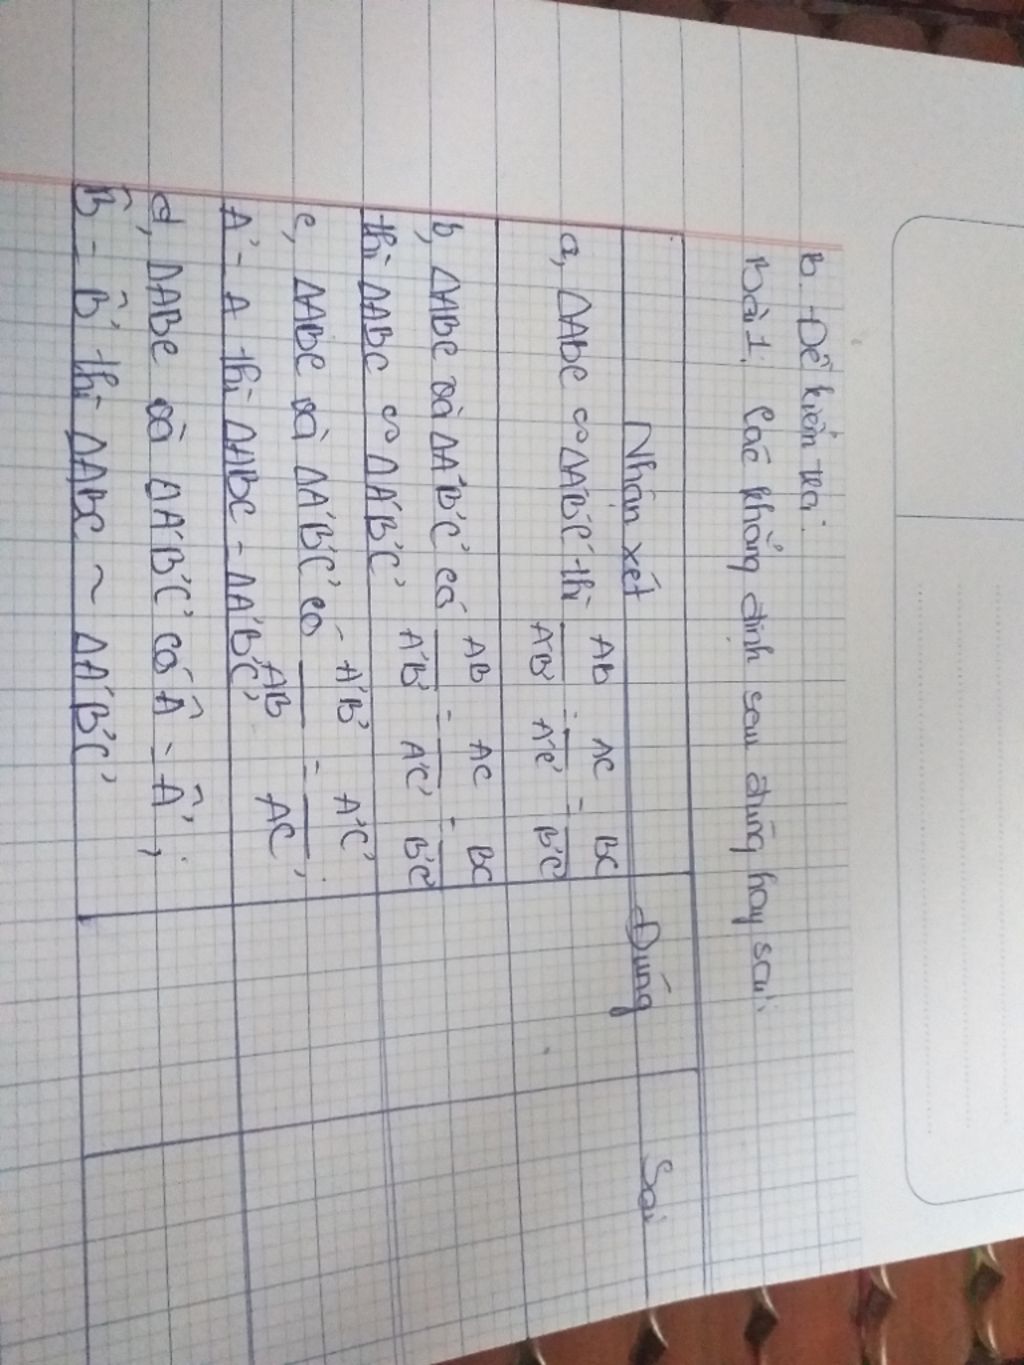 B. Đề kiểm tra:
Bài 1: Các khẳng định sau đúng hay sai:
Nhận xét Đúng Sai
a, ΔABC ∽ ΔA'B'C' thì AB/A'B' = AC/A'C' = BC/B'C'
b, ΔABC và ΔA'B'C' có AB/A'B' = AC/A'C' = BC/B'C'
thì ΔABC ∽ ΔA'B'C'
c, ΔABC và ΔA'B'C' có A'B'/AB = A'C'/AC,
A' = A thì ΔABC = ΔA'B'C'
d, ΔABC và ΔA'B'C' có Â = Â',
B̂ = B̂' thì ΔABC ~ ΔA'B'C'